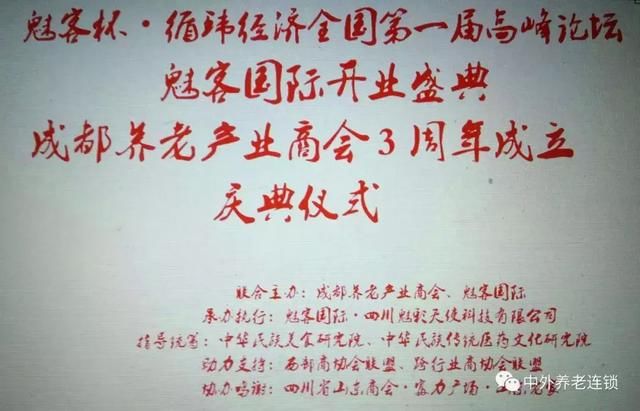 魅客杯·循玮经济全国第一届高峰论坛
魅客国际开业盛典
成都养老产业商会3周年成立
庆典仪式
联合主办：成都养老产业商会、魅客国际
承办执行：魅客国际·四川魅彩天使科技有限公司
指导统筹：中华民族美食研究院、中华民族传统医药文化研究院
动力支持：西部商协会联盟、跨行业商协会联盟
协办鸣谢：四川省山东商会·富力广场·
中外养老连锁